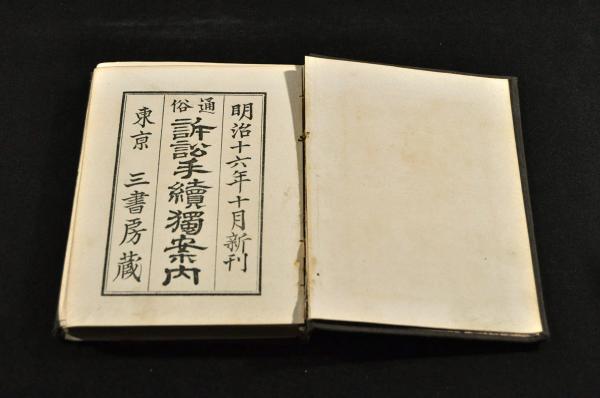 明治十六年十月新刊
通俗
訴訟手續獨案内
東京 三書房蔵